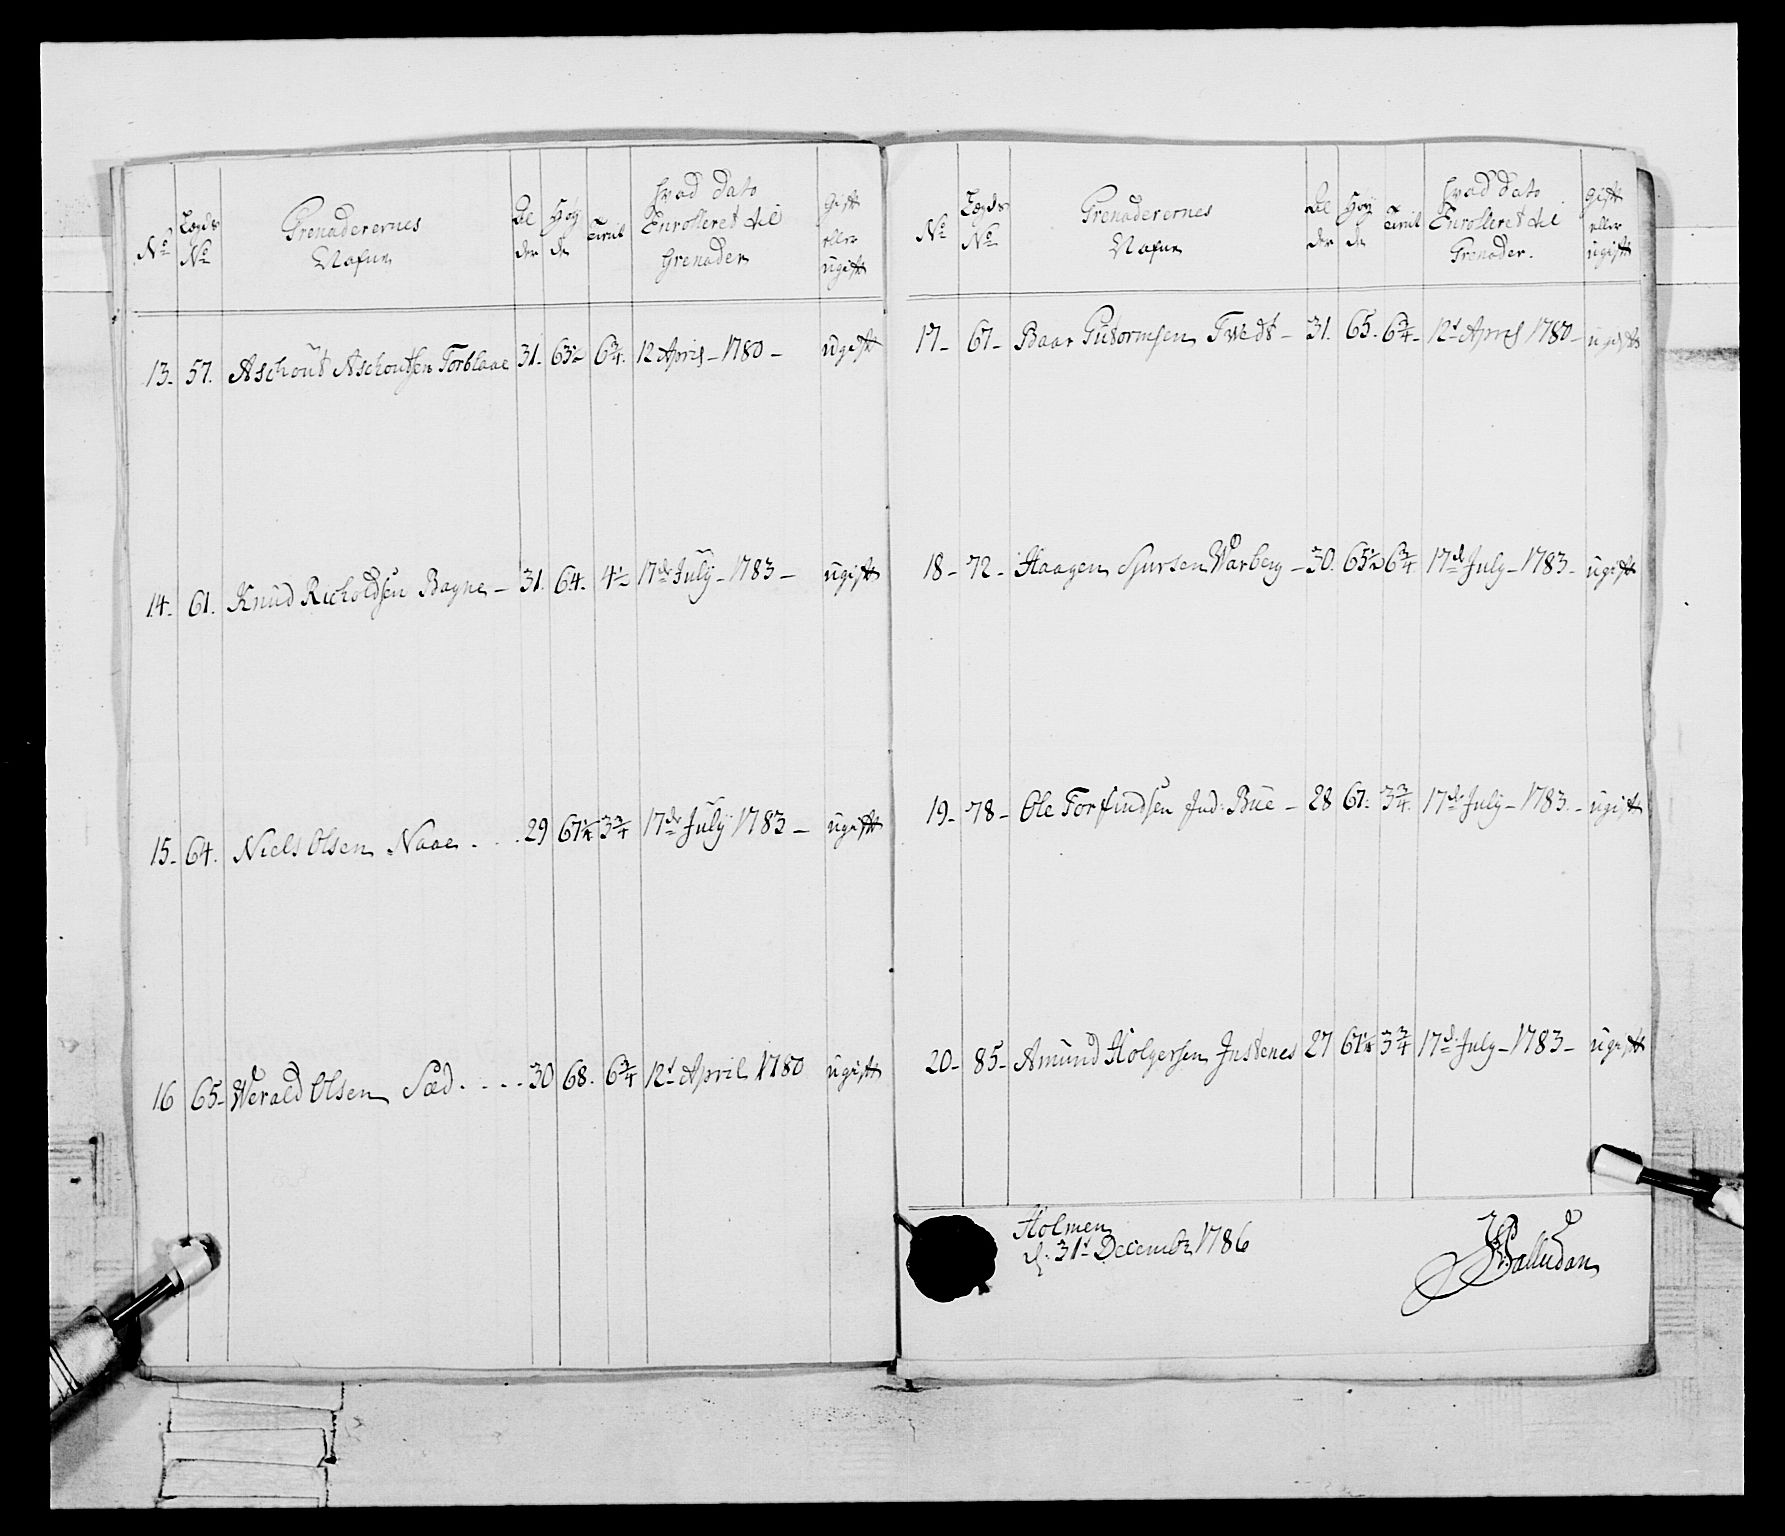 No
Lægds No
Grenaderernes Nafne
Al der
Høy de
Tienil
hvad dato Enrolleret til Grenader
gift eller ugift
13. 57. Aschout Aschoutsen Torblaae 31. 63½ 6¾. 12 April 1780 ugift
14. 61. Knud Richoldsen Bagne 31. 64. 4½ 17de July 1783 ugift
15. 64. Niels Olsen Naae 29 67¼ 3¾ 17de July 1783 ugift
16 65 Werald Olsen Sæd 30 68. 6¾ 12t April 1780 ugift
No
Lægds No
Grenaderernes Nafne
Al der
Høy de
Tienil
hvad dato Enrolleret til Grenader.
gift eller ugift
17 67 Baar Gutormsen Tvedt 31. 65. 6¾ 12t April 1780 ugift
18 72 Haagen Siursen Warberg 30. 65½ 6¾ 17de July 1783 ugift
19 78 Ole Torfindsen Ind: Bue 28 67. 3¾. 17de July 1783 ugift
20 85 Amund Holgersen Instenes 27 67¼ 3¾ 17de July 1783 ugift
Holmen
d. 31t Decembr 1786
Palludan